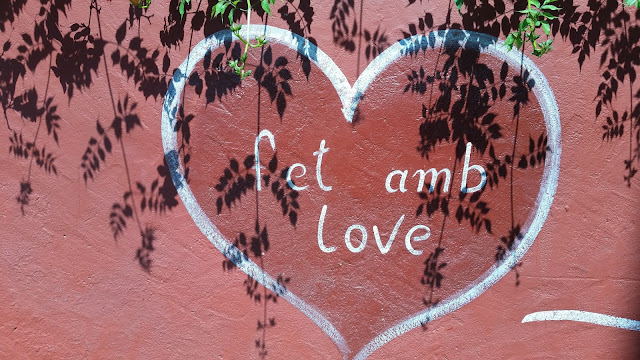 fet amb
love